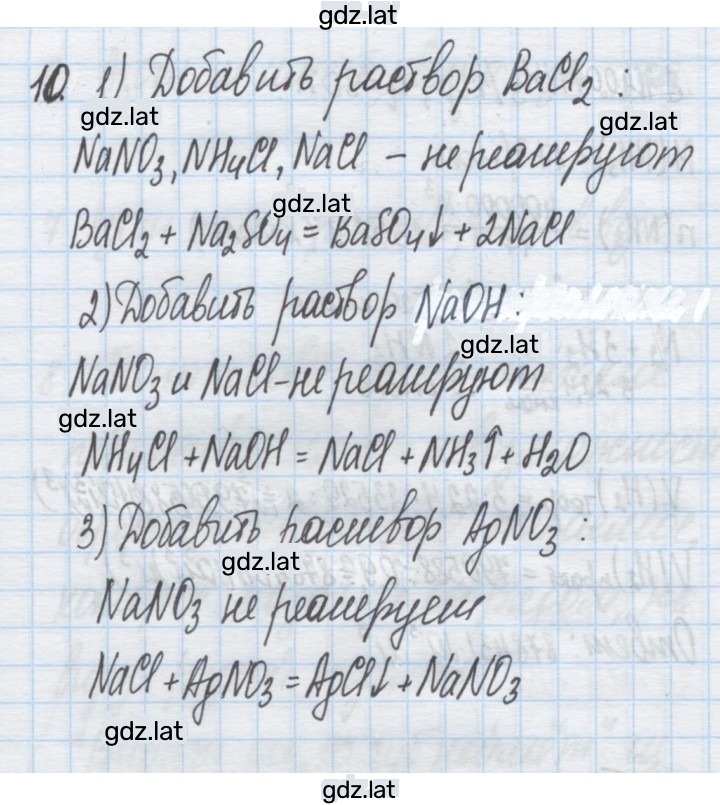 gdz.lat
10. 1) Добавить раствор BaCl₂ :
gdz.lat
gdz.lat
NaNO₃, NH₄Cl, NaCl – не реагируют
gdz.lat
BaCl₂ + Na₂SO₄ = BaSO₄↓ + 2NaCl
2) Добавить раствор NaOH :
gdz.lat
NaNO₃ и NaCl - не реагируют
gdz.lat
NH₄Cl + NaOH = NaCl + NH₃↑ + H₂O
3) Добавить раствор AgNO₃ :
gdz.lat
NaNO₃ не реагирует
NaCl + AgNO₃ = AgCl↓ + NaNO₃
gdz.lat
gdz.lat